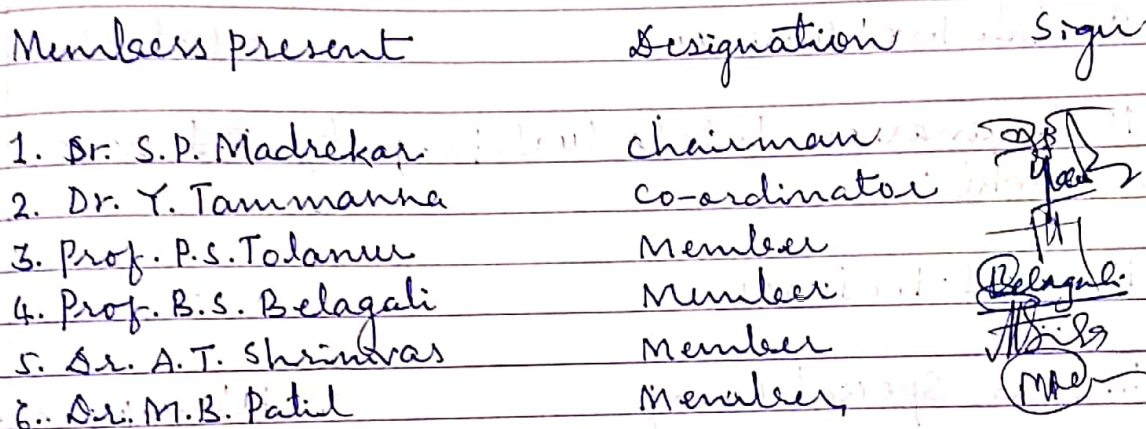 Members present Designation Sign
1. Dr. S.P. Madrekar chairman
2. Dr. Y. Tammanna co-ordinator
3. Prof. P.S. Tolanur Member
4. Prof. B.S. Belagali Member Belagali
5. Dr. A.T. Shrinivas Member
6. Dr. M.B. Patil Member